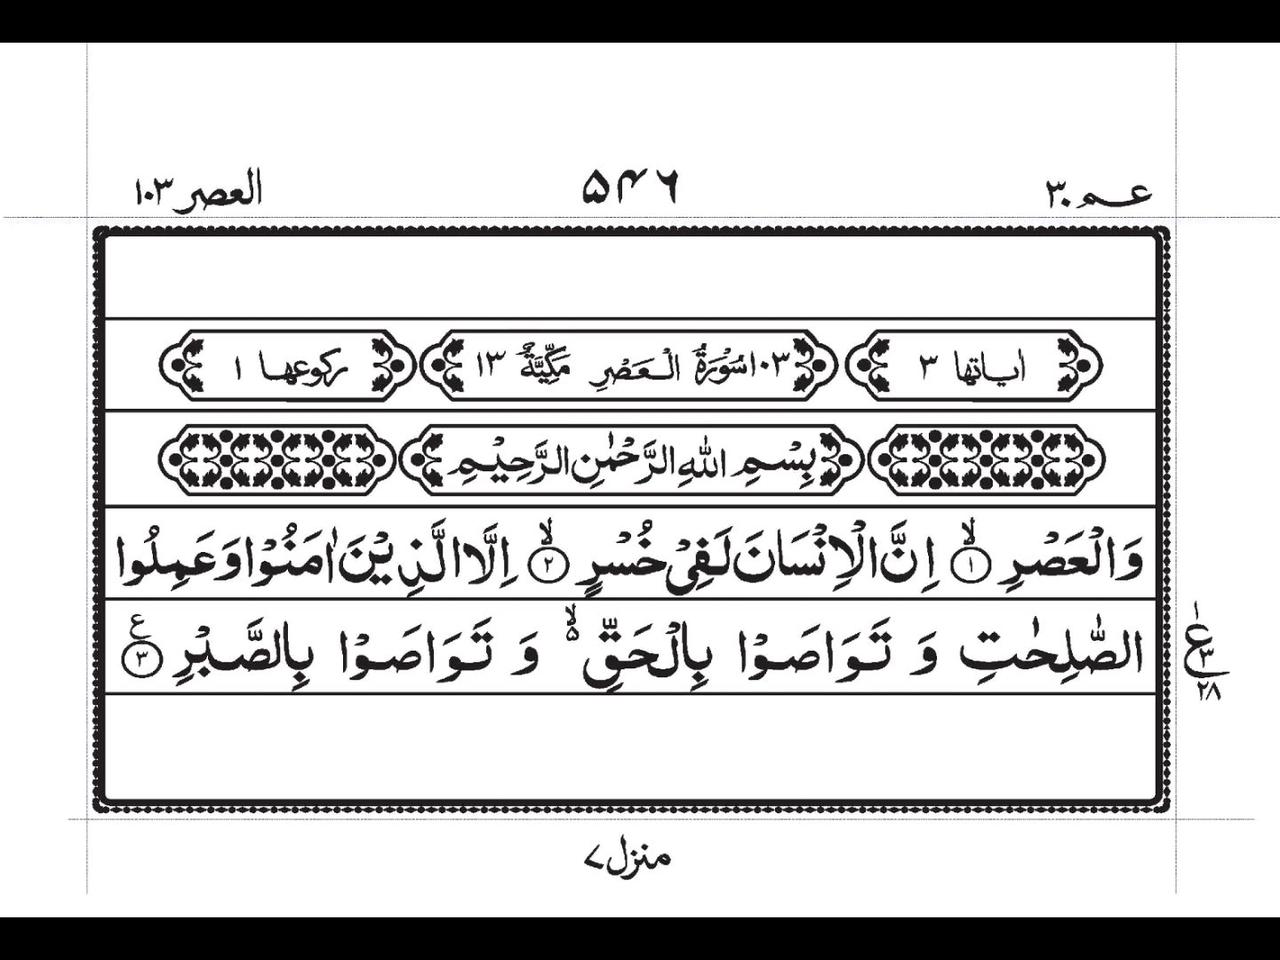 عم ٣٠ ۵۴۶ العصر ١٠٣
اٰیاتها ٣ ١٠٣ سُوْرَةُ الْعَصْرِ مَكِّيَّةٌ ١٣ ركوعها ١
بِسْمِ اللّٰهِ الرَّحْمٰنِ الرَّحِيْمِ
وَالْعَصْرِ ۙ﴿١﴾ اِنَّ الْاِنْسَانَ لَفِيْ خُسْرٍ ۙ﴿٢﴾ اِلَّا الَّذِيْنَ اٰمَنُوْا وَ عَمِلُوا
الصّٰلِحٰتِ وَ تَوَاصَوْا بِالْحَقِّ ۙ۵ وَ تَوَاصَوْا بِالصَّبْرِ ﴿٣﴾ ع
ع ١ ٣ ٢٨
منزل ٧